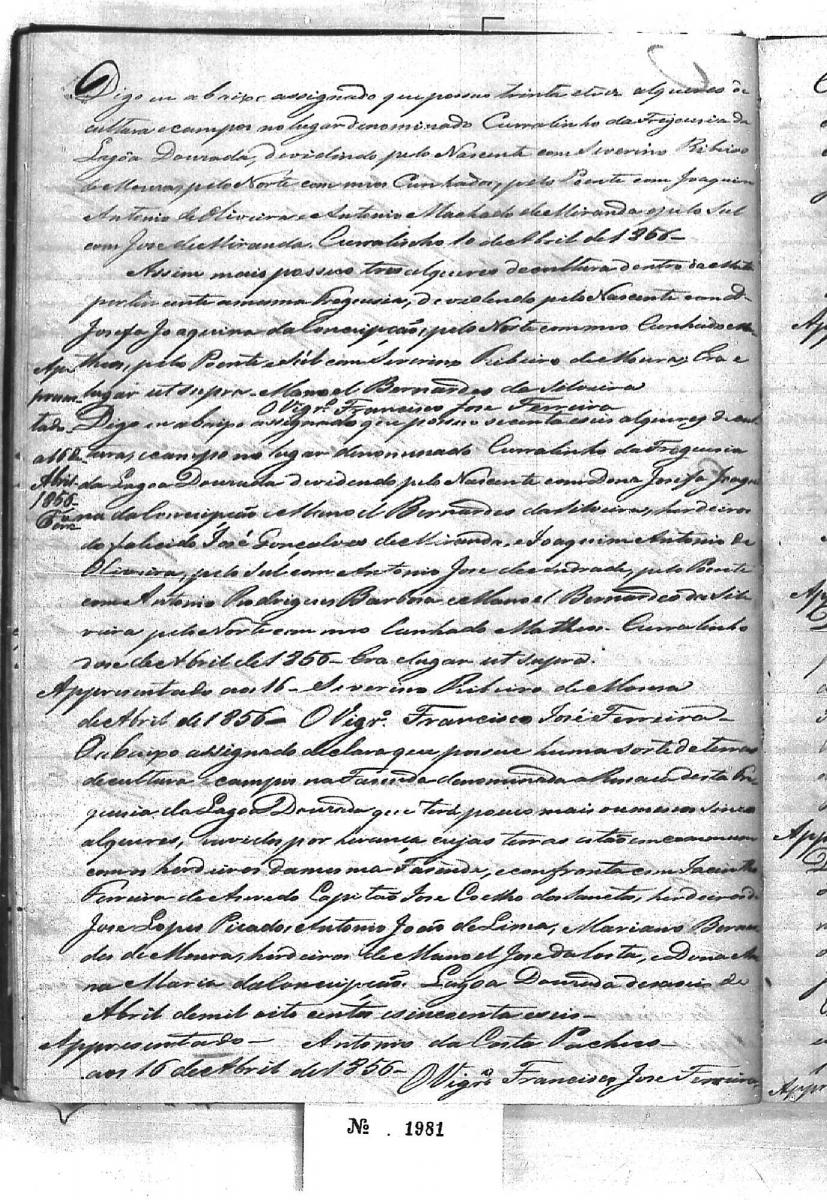 Digo eu abaixo assignado que possuo trinta e tres alqueres de
cultura e campos no lugar denominado Curralinho da Freguesia da
Lagôa Dourada, devidindo pelo Nascente com Severino Ribeiro
de Moura, pelo Norte com meos Cunhados, pelo Poente com Joaquim
Antonio de Oliveira e Antonio Machado de Miranda e pelo Sul
com Jose de Miranda. Curralinho 10 de Abril de 1856-
Assim mais possuo tres alqueres de cultura dentro da
pertincente a mesma Freguesia, devidindo pelo Nascente com D.
Josefa Joaquina da Conceipção, pelo Norte com meo Cunhado Ma-
theus, pelo Poente e Sul com Severino Ribeiro de Moura, Era e
lugar ut supra. Manoel Bernardes da Silveira
O Vigrº. Francisco José Ferreira
Apre
zen-
tado
a 16 de
Abril
1856
Digo eu abaixo assignado que possuo secenta e seis alqueres de cul
turas, e campo no lugar denominado Curralinho da Freguesia
da Lagoa Dourada devidendo pelo Nascente com Dona Josefa Joaqui
na da Conceipção e Manoel Bernardes da Silveira, herdeiros
do falicido José Goncalves de Miranda, e Joaquim Antonio de
Oliveira, pelo Sul com Antonio Jose de Andrade, pelo Poente
com Antonio Rodrigues Barbosa e Manoel Bernardes da Sil-
veira pelo Norte com meo Cunhado Matheos. Curralinho
dose de Abril de 1856- Era e lugar ut supra.
Appresentado aos 16- Severino Ribeiro de Moura
de Abril de 1856- O Vigrº. Francisco José Ferreira-
O abaixo assignado declara que possue huma sorte de terras
de cultura e campos na Fazenda denominada desta Fre
guesia da Lagoa Dourada que terá pouco mais ou menos sinco
alqueres, havidos por herança cujas terras estão em commum
com os herdeiros da mesma Fasenda, e confronta com Jacintho
Ferreira de Asevedo Capitão Jose Coelho dos Santos, herdeiros de
Jose Lopes Picado, Antonio João de Lima, Mariano Berna
des de Moura, herdeiros de Manoel Jose da Costa, e Dona An
na Maria da Conceipção. Lagoa Dourada desaseis de
Abril de mil oito centos e sincoenta e seis-
Appresentado- Antonio da Costa Pacheco-
aos 16 de Abril de 1856- O Vigrº Francisco Jose Ferreira
Nº . 1981